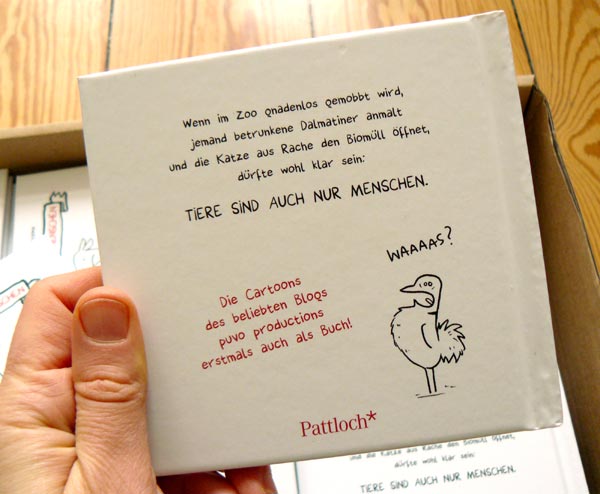 Wenn im Zoo gnadenlos gemobbt wird,
jemand betrunkene Dalmatiner anmalt
und die Katze aus Rache den Biomüll öffnet,
dürfte wohl klar sein:
TIERE SIND AUCH NUR MENSCHEN.
WAAAAS?
Die Cartoons
des beliebten Blogs
puvo productions
erstmals auch als Buch!
Pattloch*
und die Katze aus Rache den Biomüll öffnet,
dürfte wohl klar sein:
TIERE SIND AUCH NUR MENSCHEN.